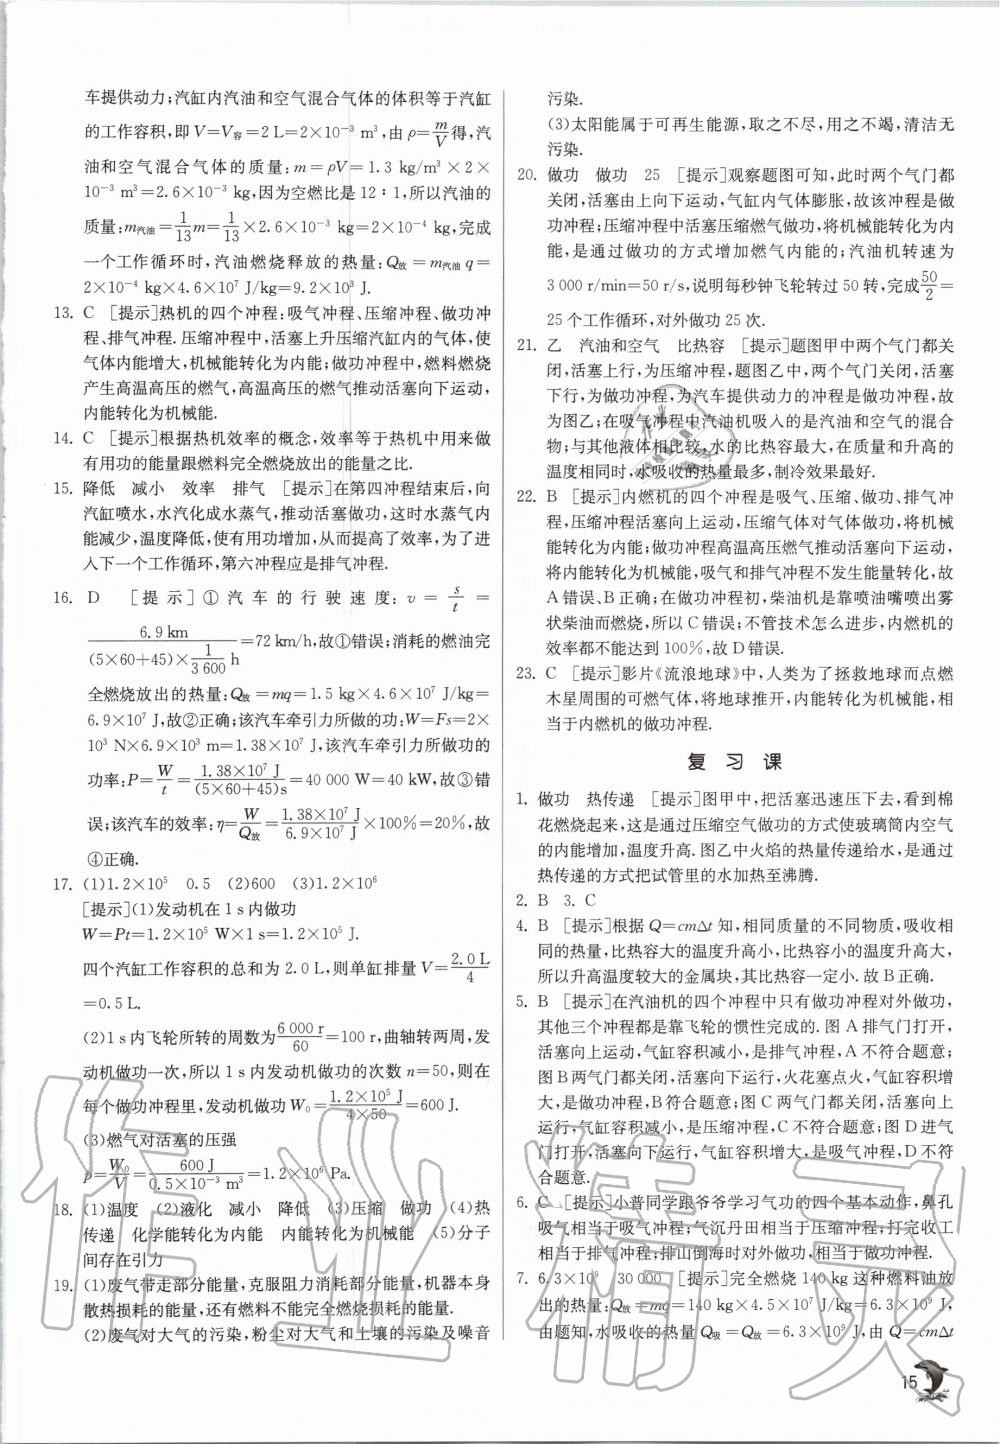 车提供动力;汽缸内汽油和空气混合气体的体积等于汽缸
的工作容积,即V=V容=2 L=2×10⁻³ m³,由ρ=m/V得,汽
油和空气混合气体的质量:m=ρV=1.3 kg/m³×2×
10⁻³ m³=2.6×10⁻³ kg,因为空燃比是12∶1,所以汽油的
质量:m汽油=1/13m=1/13×2.6×10⁻³ kg=2×10⁻⁴ kg,完成
一个工作循环时,汽油燃烧释放的热量:Q放=m汽油q=
2×10⁻⁴ kg×4.6×10⁷ J/kg=9.2×10³ J.
13. C [提示]热机的四个冲程:吸气冲程、压缩冲程、做功冲
程、排气冲程.压缩冲程中,活塞上升压缩汽缸内的气体,使
气体内能增大,机械能转化为内能;做功冲程中,燃料燃烧
产生高温高压的燃气,高温高压的燃气推动活塞向下运动,
内能转化为机械能.
14. C [提示]根据热机效率的概念,效率等于热机中用来做
有用功的能量跟燃料完全燃烧放出的能量之比.
15. 降低 减小 效率 排气 [提示]在第四冲程结束后,向
汽缸喷水,水汽化成水蒸气,推动活塞做功,这时水蒸气内
能减少,温度降低,使有用功增加,从而提高了效率,为了进
入下一个工作循环,第六冲程应是排气冲程.
16. D [提示]①汽车的行驶速度:v=s/t=
6.9 km/((5×60+45)×1/3 600 h)=72 km/h,故①错误;消耗的燃油完
全燃烧放出的热量:Q放=mq=1.5 kg×4.6×10⁷ J/kg=
6.9×10⁷ J,故②正确;该汽车牵引力所做的功:W=Fs=2×
10³ N×6.9×10³ m=1.38×10⁷ J,该汽车牵引力所做功的
功率:P=W/t=1.38×10⁷ J/(5×60+45)s=40 000 W=40 kW,故③错
误;该汽车的效率:η=W/Q放=1.38×10⁷ J/6.9×10⁷ J×100%=20%,故
④正确.
17. (1)1.2×10⁵ 0.5 (2)600 (3)1.2×10⁶
[提示](1)发动机在1 s内做功
W=Pt=1.2×10⁵ W×1 s=1.2×10⁵ J.
四个汽缸工作容积的总和为2.0 L,则单缸排量V=2.0 L/4
=0.5 L.
(2)1 s内飞轮所转的周数为6 000 r/60=100 r,曲轴转两周,发
动机做功一次,所以1 s内发动机做功的次数n=50,则在
每个做功冲程里,发动机做功W₀=1.2×10⁵ J/4×50=600 J.
(3)燃气对活塞的压强
p=W₀/V=600 J/0.5×10⁻³ m³=1.2×10⁶ Pa.
18. (1)温度 (2)液化 减小 降低 (3)压缩 做功 (4)热
传递 化学能转化为内能 内能转化为机械能 (5)分子
间存在引力
19. (1)废气带走部分能量,克服阻力消耗部分能量,机器本身
散热损耗的能量,还有燃料不能完全燃烧损耗的能量.
(2)废气对大气的污染,粉尘对大气和土壤的污染及噪音
污染.
(3)太阳能属于可再生能源,取之不尽,用之不竭,清洁无
污染.
20. 做功 做功 25 [提示]观察题图可知,此时两个气门都
关闭,活塞由上向下运动,气缸内气体膨胀,故该冲程是做
功冲程;压缩冲程中活塞压缩燃气做功,将机械能转化为内
能,是通过做功的方式增加燃气内能的;汽油机转速为
3 000 r/min=50 r/s,说明每秒钟飞轮转过50转,完成50/2=
25个工作循环,对外做功25次.
21. 乙 汽油和空气 比热容 [提示]题图甲中两个气门都关
闭,活塞上行,为压缩冲程,题图乙中,两个气门关闭,活塞
下行,为做功冲程,为汽车提供动力的冲程是做功冲程,故
为图乙;在吸气冲程中汽油机吸入的是汽油和空气的混合
物;与其他液体相比较,水的比热容最大,在质量和升高的
温度相同时,水吸收的热量最多,制冷效果最好.
22. B [提示]内燃机的四个冲程是吸气、压缩、做功、排气冲
程,压缩冲程活塞向上运动,压缩气体对气体做功,将机械
能转化为内能;做功冲程高温高压燃气推动活塞向下运动,
将内能转化为机械能,吸气和排气冲程不发生能量转化,故
A错误、B正确;在做功冲程初,柴油机是靠喷油嘴喷出雾
状柴油而燃烧,所以C错误;不管技术怎么进步,内燃机的
效率都不能达到100%,故D错误.
23. C [提示]影片《流浪地球》中,人类为了拯救地球而点燃
木星周围的可燃气体,将地球推开,内能转化为机械能,相
当于内燃机的做功冲程.
复 习 课
1. 做功 热传递 [提示]图甲中,把活塞迅速压下去,看到棉
花燃烧起来,这是通过压缩空气做功的方式使玻璃筒内空气
的内能增加,温度升高.图乙中火焰的热量传递给水,是通过
热传递的方式把试管里的水加热至沸腾.
2. B 3. C
4. B [提示]根据Q=cmΔt知,相同质量的不同物质,吸收相
同的热量,比热容大的温度升高小,比热容小的温度升高大,
所以升高温度较大的金属块,其比热容一定小.故B正确.
5. B [提示]在汽油机的四个冲程中只有做功冲程对外做功,
其他三个冲程都是靠飞轮的惯性完成的.图A排气门打开,
活塞向上运动,气缸容积减小,是排气冲程,A不符合题意;
图B两气门都关闭,活塞向下运行,火花塞点火,气缸容积增
大,是做功冲程,B符合题意;图C两气门都关闭,活塞向上
运行,气缸容积减小,是压缩冲程,C不符合题意;图D进气
门打开,活塞向下运行,气缸容积增大,是吸气冲程,D不符
合题意.
6. C [提示]小普同学跟爷爷学习气功的四个基本动作,鼻孔
吸气相当于吸气冲程;气沉丹田相当于压缩冲程;打完收工
相当于排气冲程;排山倒海时对外做功,相当于做功冲程.
7. 6.3×10⁹ 30 000 [提示]完全燃烧140 kg这种燃料油放
出的热量:Q放=mq=140 kg×4.5×10⁷ J/kg=6.3×10⁹ J,
由题知,水吸收的热量Q吸=Q放=6.3×10⁹ J,由Q=cmΔt
15
作业精灵